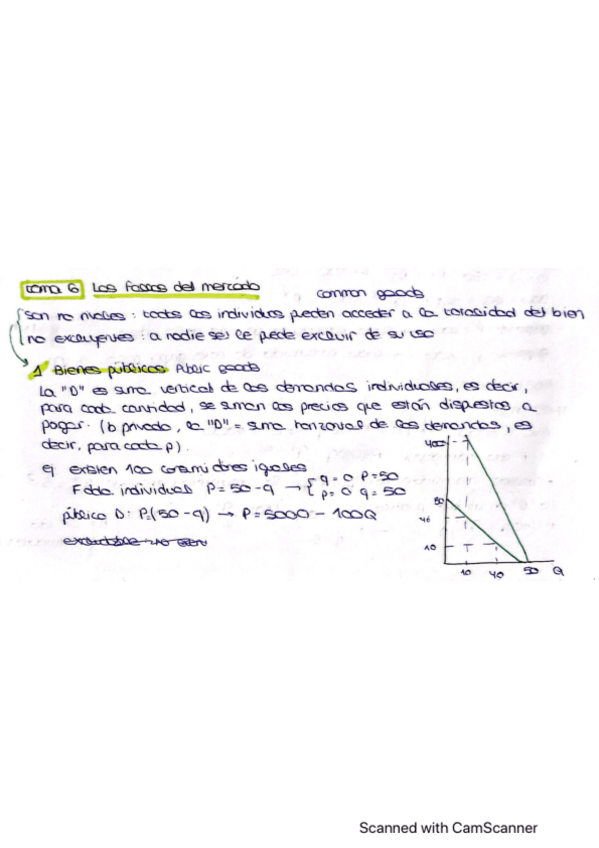 tema 6 Los fallos del mercado
common goods
son no rivales : todos los individuos pueden acceder a la totalidad del bien
no excluyentes : a nadie se le puede excluir de su uso
1 Bienes públicos Public goods
La "D" es suma vertical de las demandas individuales, es decir,
para cada cantidad, se suman los precios que están dispuestos a
pagar. (b privado, la "D" = suma horizontal de las demandas, es
decir, para cada p).
Ej existen 100 consumidores iguales
F dda individual P = 50 - q → q = 0 P = 50
p = 0 q = 50
público D: P=(50 - q) → P = 5000 - 100Q
400
50
40
10
10 40 50 Q
Scanned with CamScanner